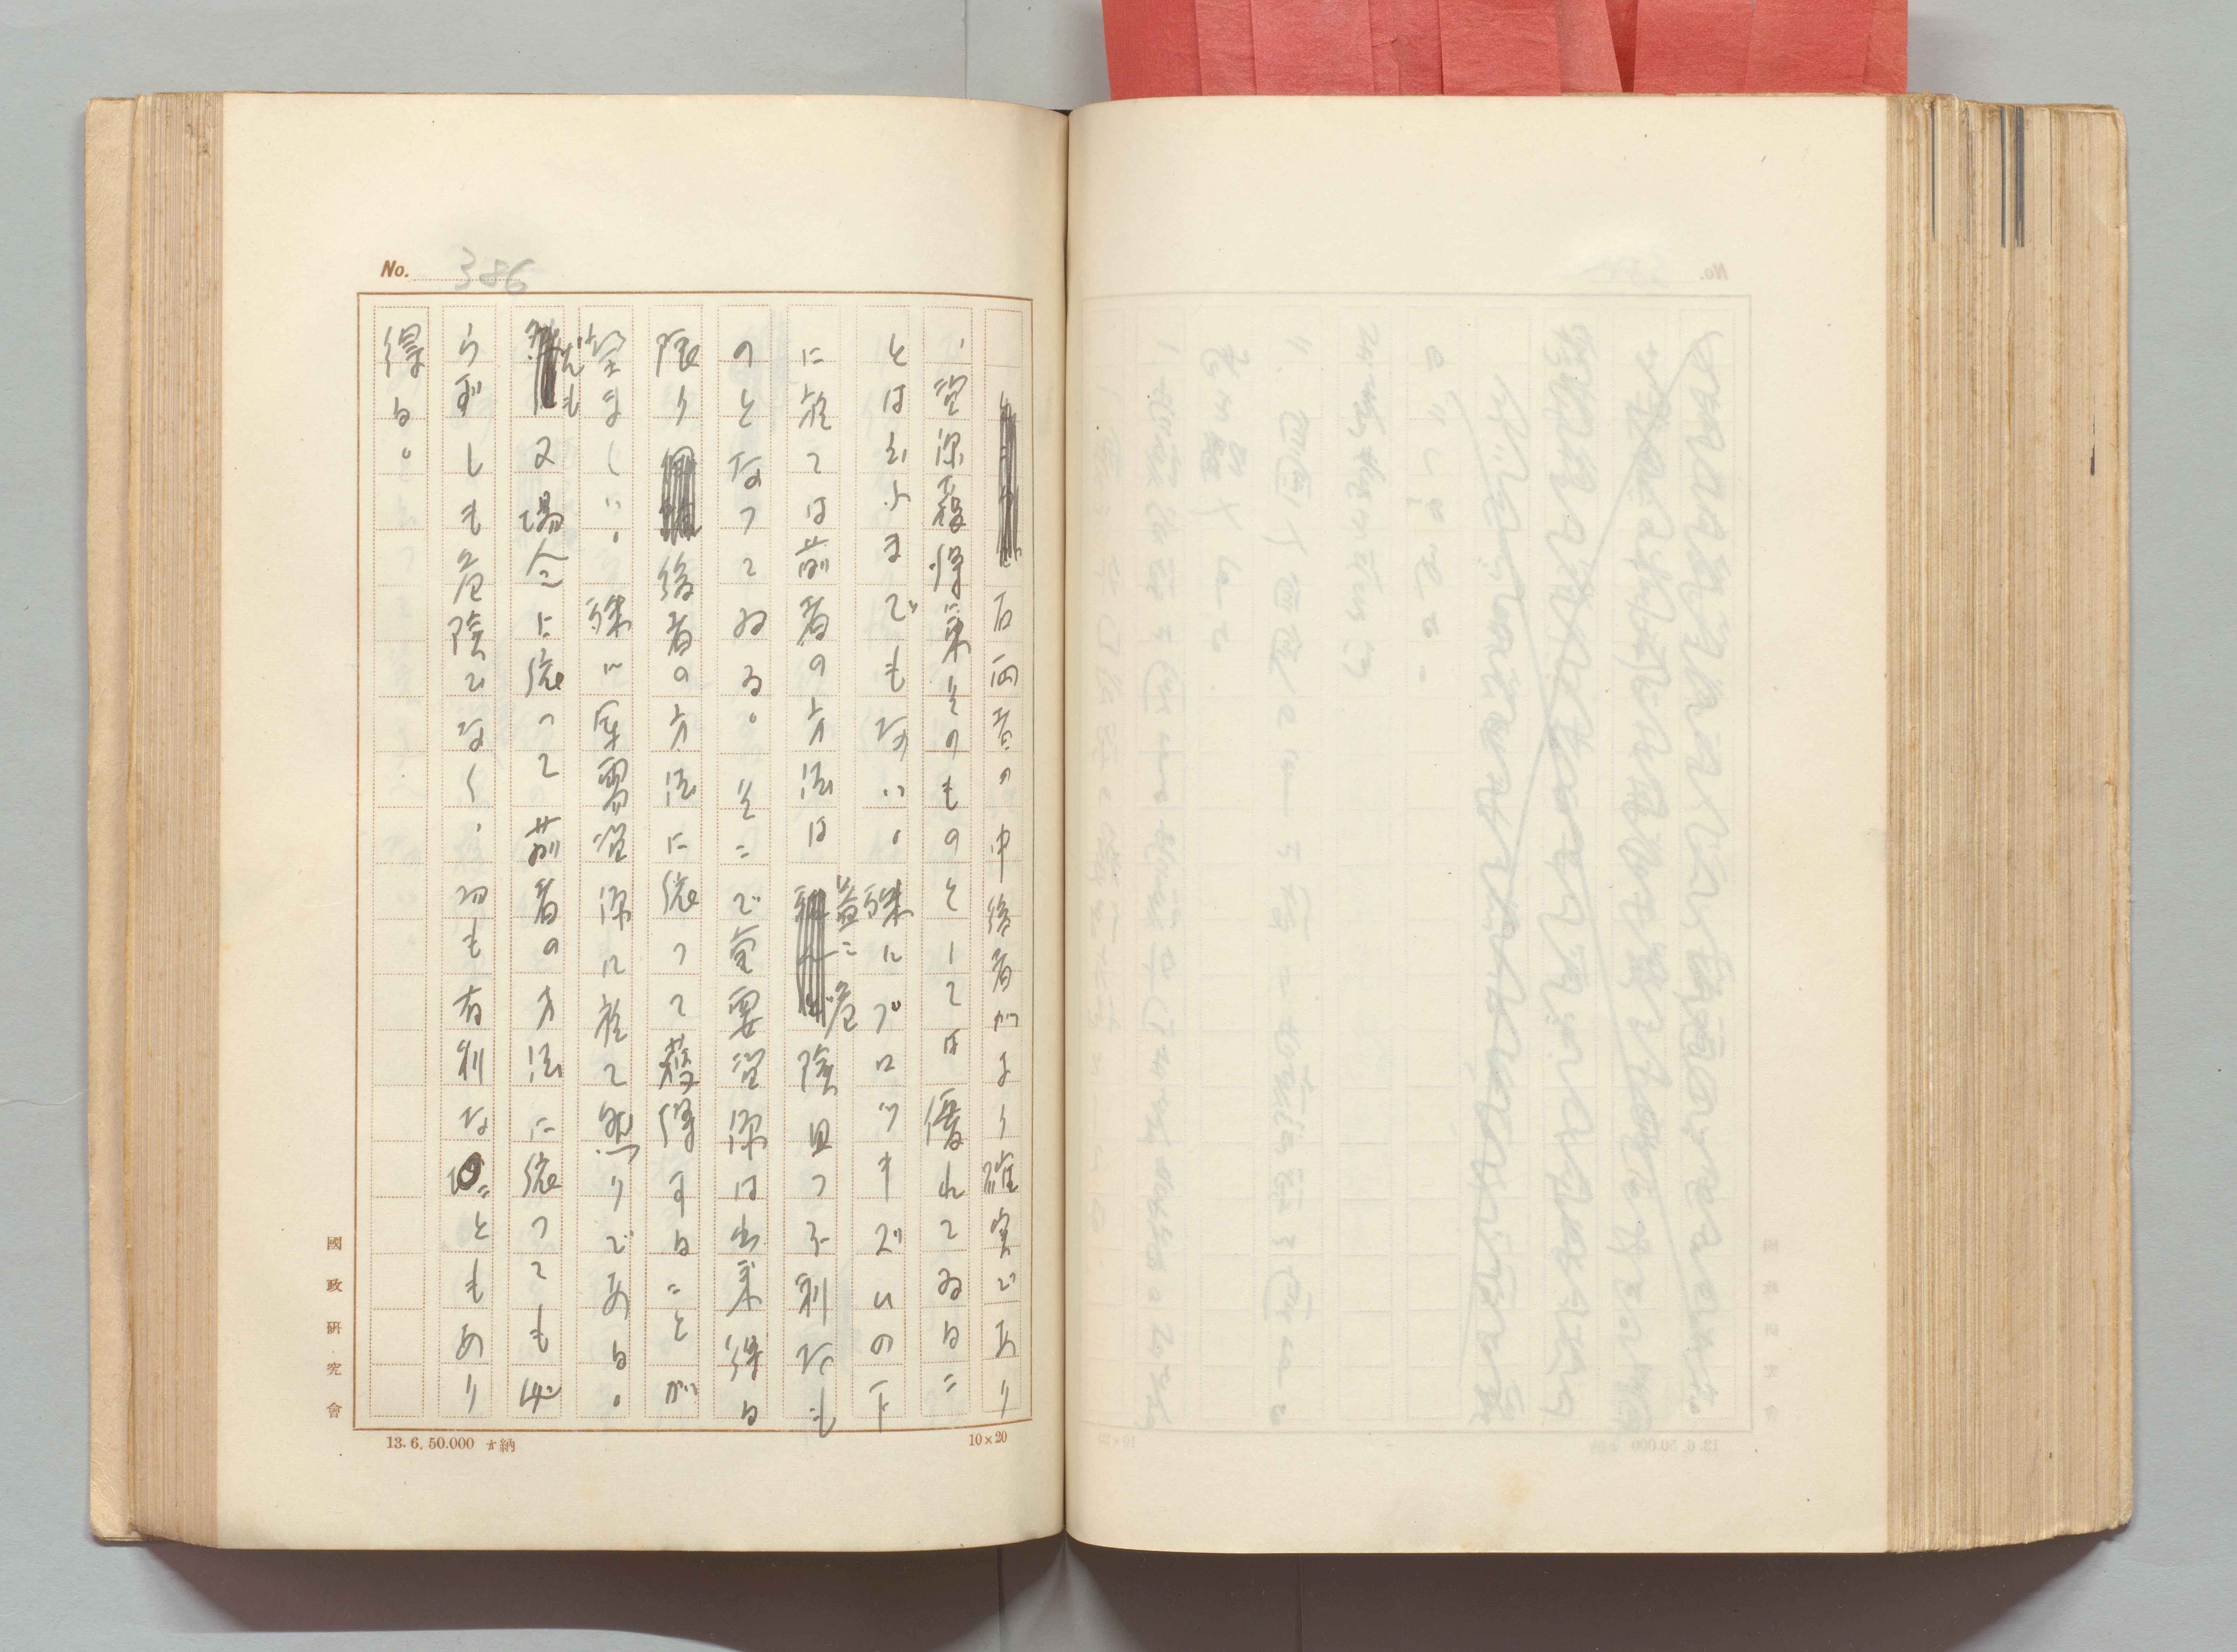 No. 386
右両者の中後者がより確実であり
、資源獲得策そのものとしては優れてゐるこ
とは云ふまでもない。殊にブロツキズムの下
に於ては前者の方法は益々危険且つ不利なも
のとなつてゐる。そこで重要資源は出来得る
限り後者の方法に従つて獲得することが
望ましい。殊に軍需資源に於て然りである。
尤も又場合に従つて前者の方法に従つても必
らずしも危険でなく、而も有利なこともあり
得る。
國政研究會
13. 6. 50.000 納
10×20